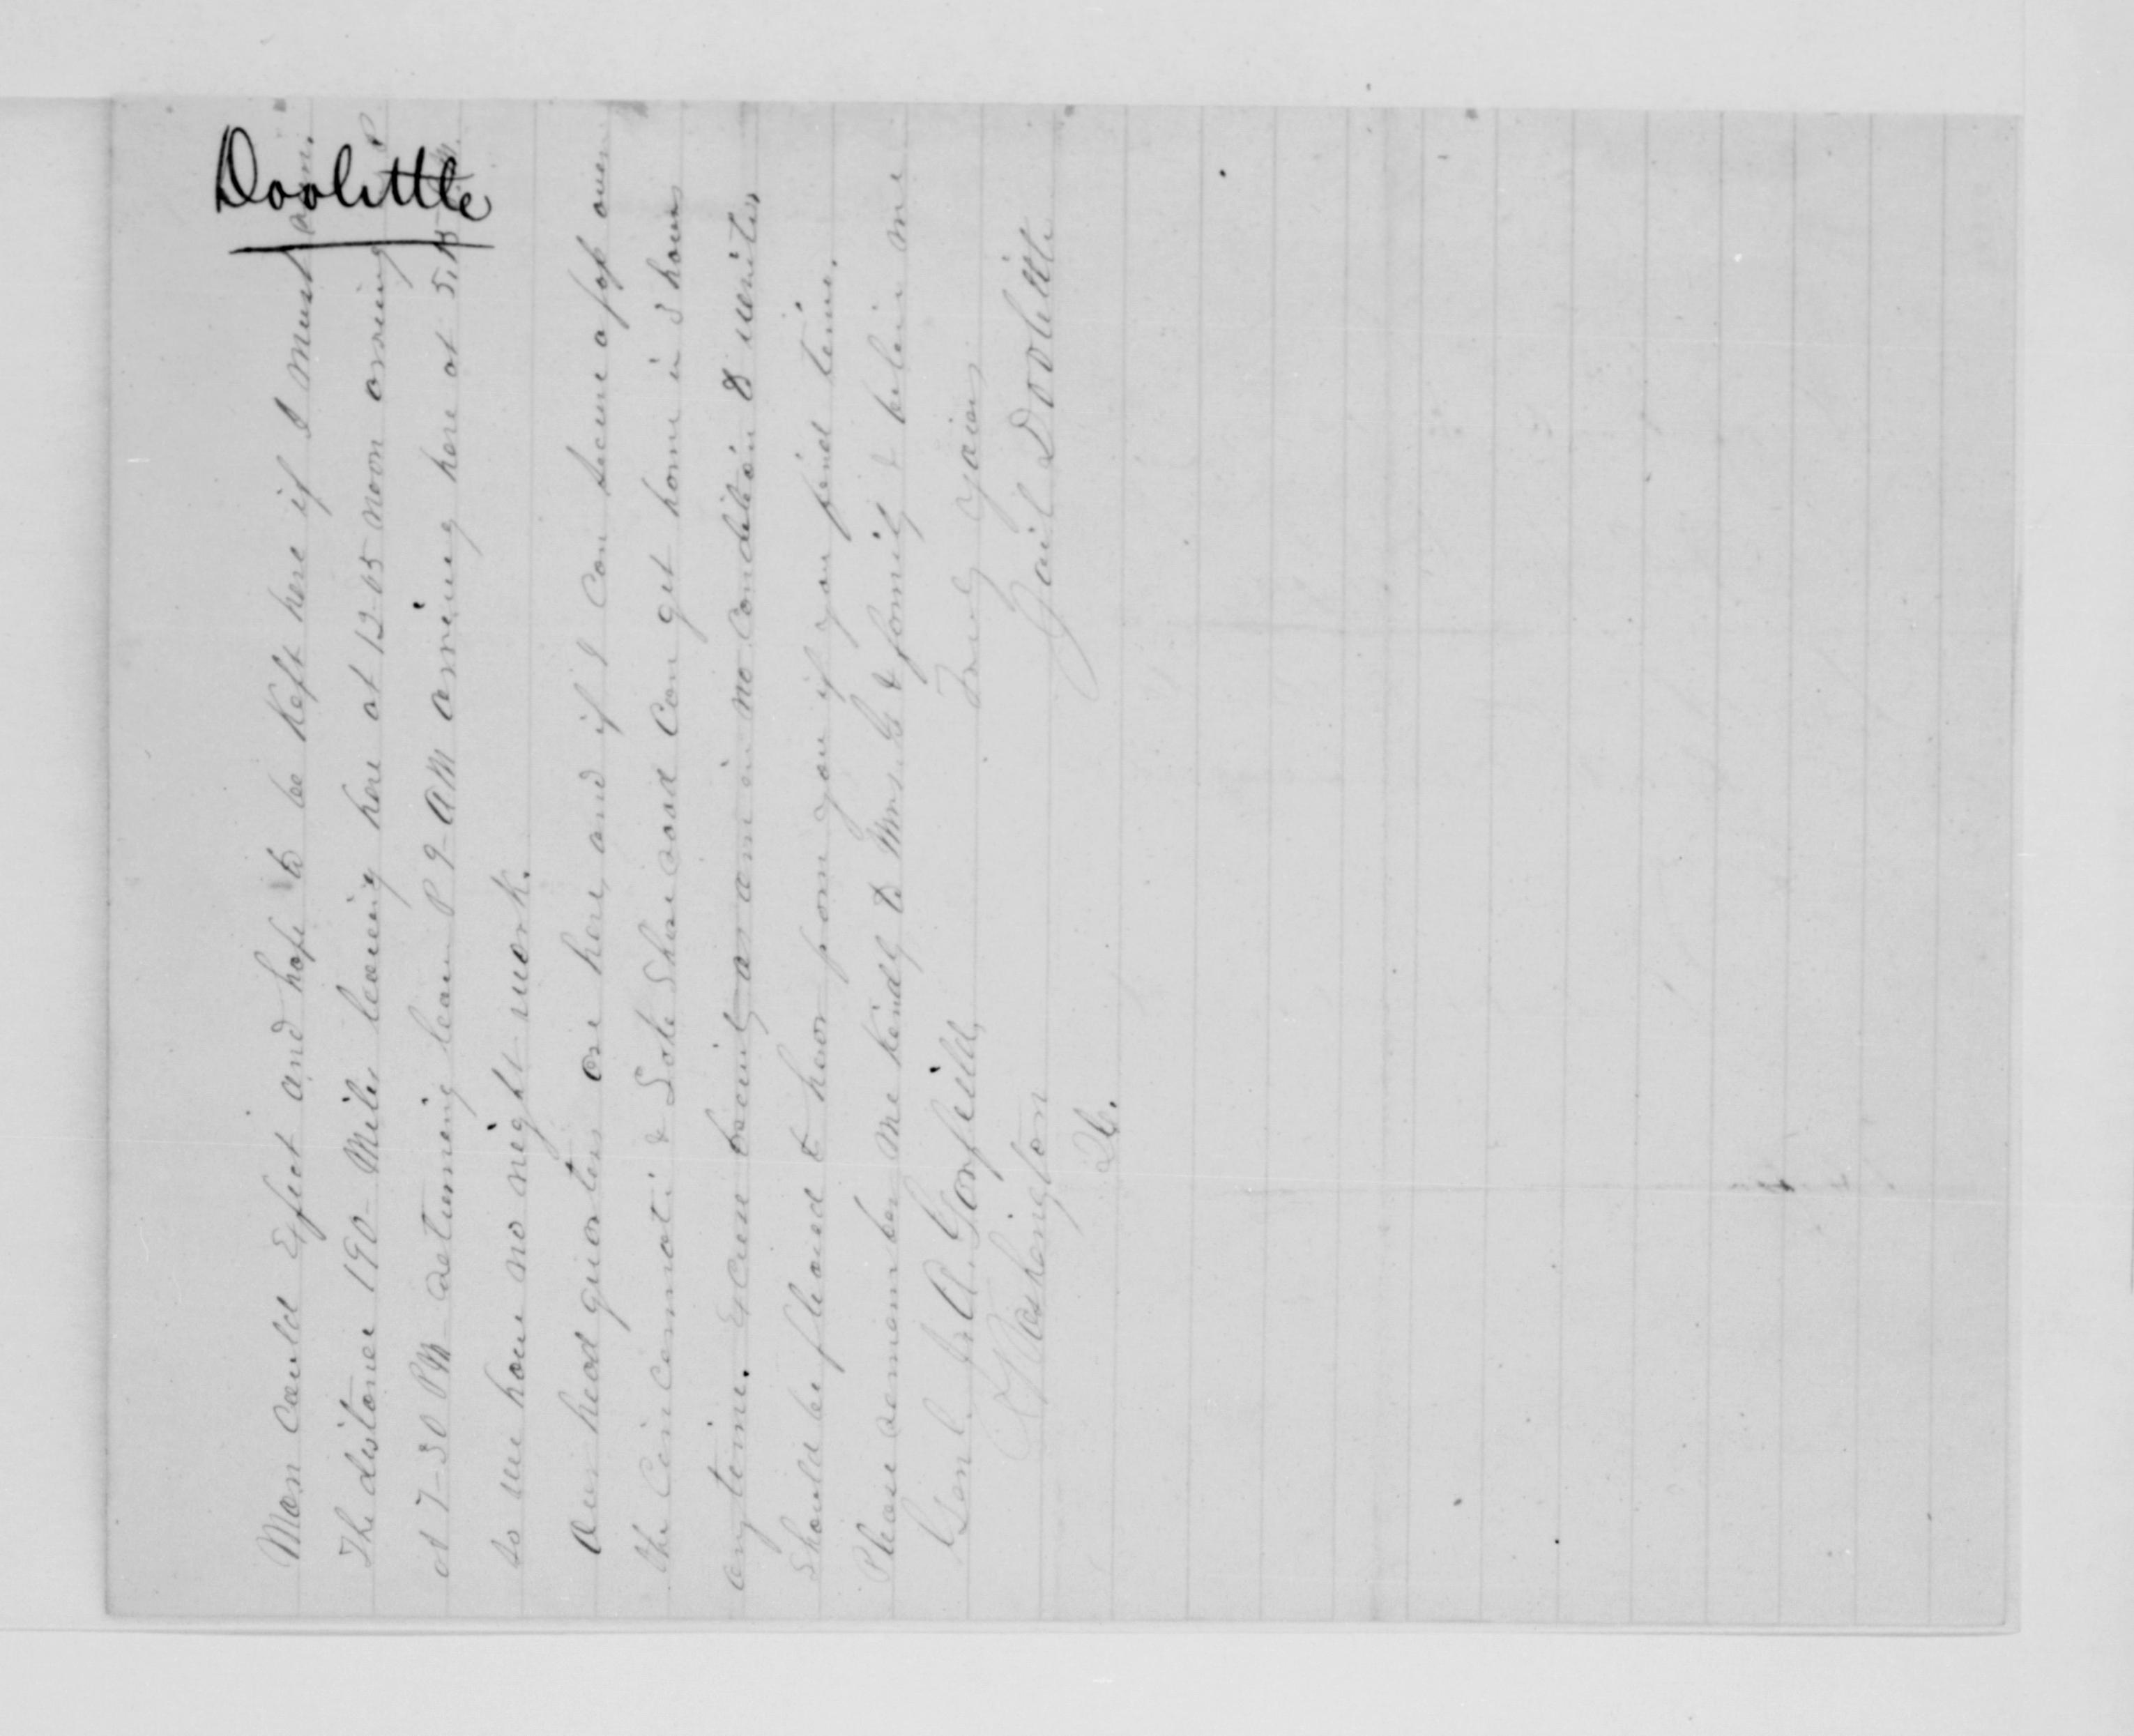 Doolittle
Man could Expect and hope to be Kept here if I must
The distance 190- Miles leaving here at 12-15 noon arriving P
at 7-30 PM returning leave P 9- AM arriving here at 5.
so we have no night work.
Our head quarters are here, and if I can secure a pop over
the Cincennati & Lake Shore road Can get home in 3 hours
anytime. Excuse brevity as am in no condition to write,
Should be pleased to hear from you if you find time.
Please remember me kindly to Mrs. G & family & believe me
Truly yours
Gail Doolittle
Genl. J. A. Garfield,
Washington